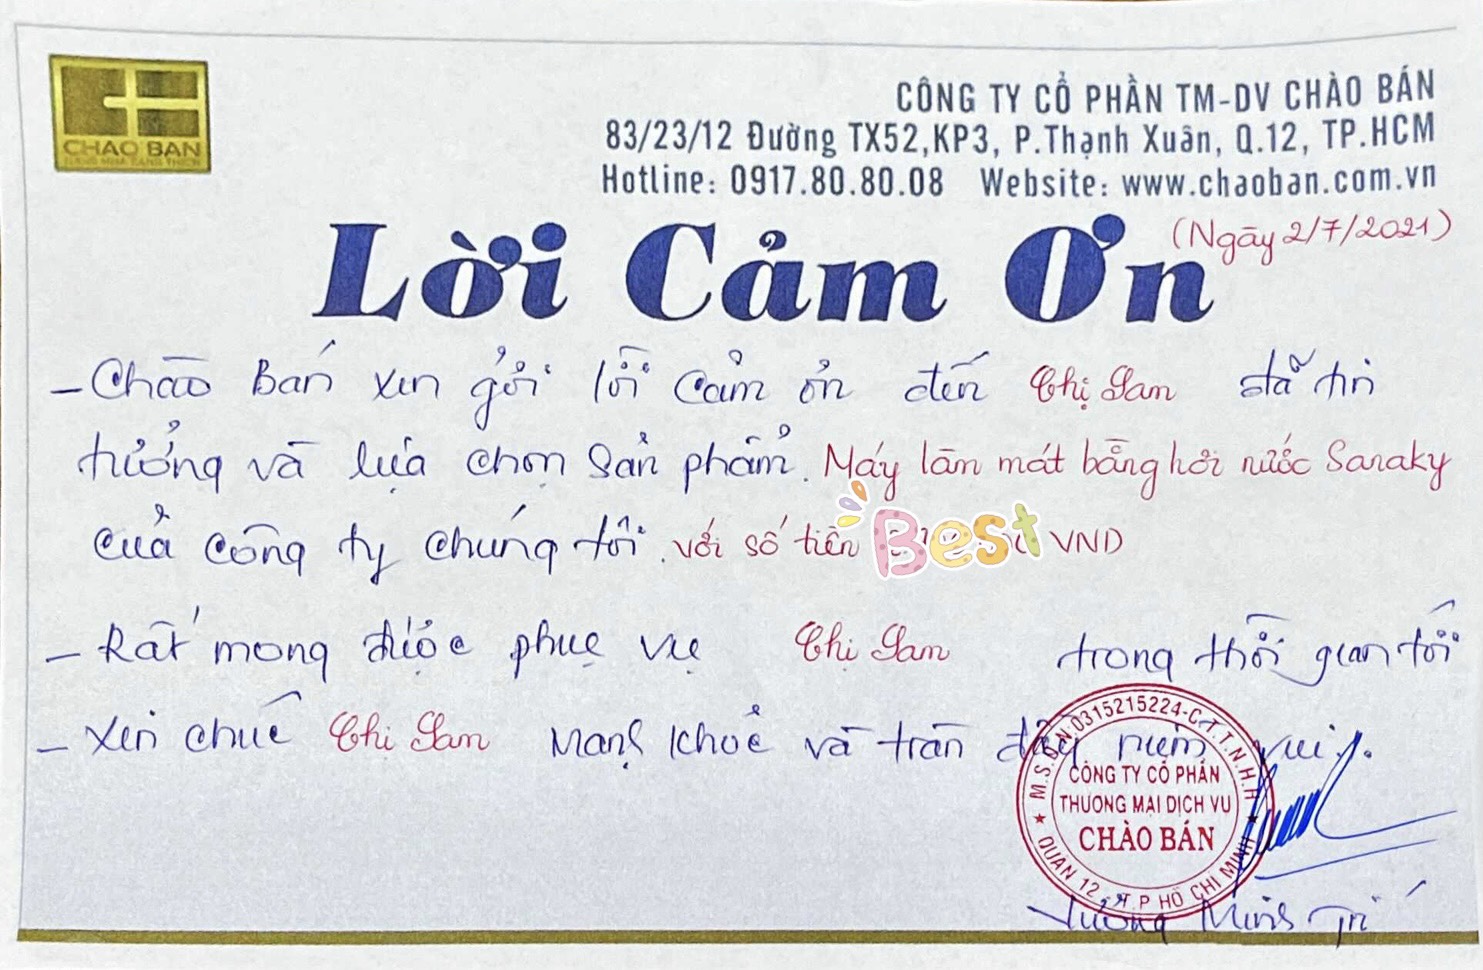 CHAO BAN
CÔNG TY CỔ PHẦN TM-DV CHÀO BÁN
83/23/12 Đường TX52,KP3, P.Thạnh Xuân, Q.12, TP.HCM
Hotline: 0917.80.80.08 Website: www.chaoban.com.vn
Lời Cảm Ơn
(Ngày 2/7/2021)
- Chào Bán xin gửi lời cảm ơn đến Chị Sam đã tin
tưởng và lựa chọn sản phẩm. Máy làm mát bằng hơi nước Sanaky
của công ty chúng tôi. với số tiền Best VND
- Rất mong được phục vụ Chị Sam trong thời gian tới
- Xin chúc Chị Sam mạnh khoẻ và tràn đầy niềm vui.
M.S.D.N:0315215224-C.T.T.N.H.H
CÔNG TY CỔ PHẦN
THƯƠNG MẠI DỊCH VỤ
CHÀO BÁN
QUẬN 12 - T.P HỒ CHÍ MINH
Vương Minh Trí